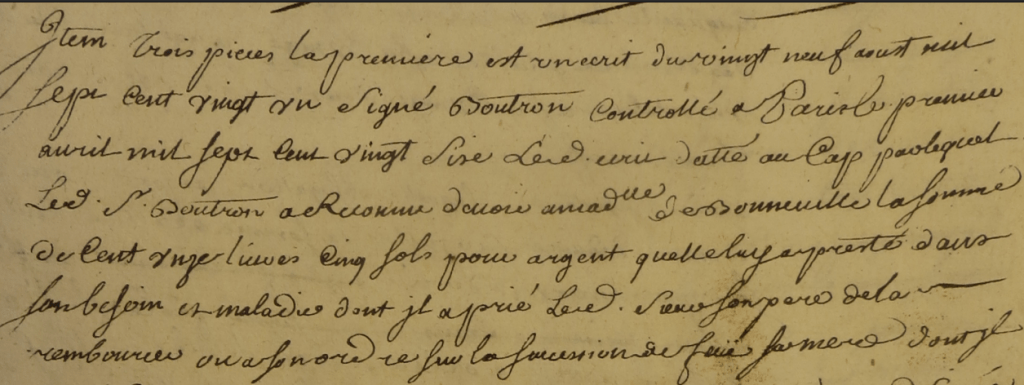 Jtem Trois pieces la premiere est un ecrit du vingt neuf aoust mil
sept Cent vingt un signé Boutron Controllé a Paris le premier
avril mil sept Cent vingt sixe Led. ecrit datté au Cap par lequel
Led. S. Boutron a Reconnu devoir a mad.lle de Bonneville la somme
de Cent unze livres Cinq sols pour argent quelle luy a presté dans
son besoin et maladie dont jl a prié Led. sieur son pere de la
rembourcer ou a son ordre sur la sucession de feüe sa mere dont jl